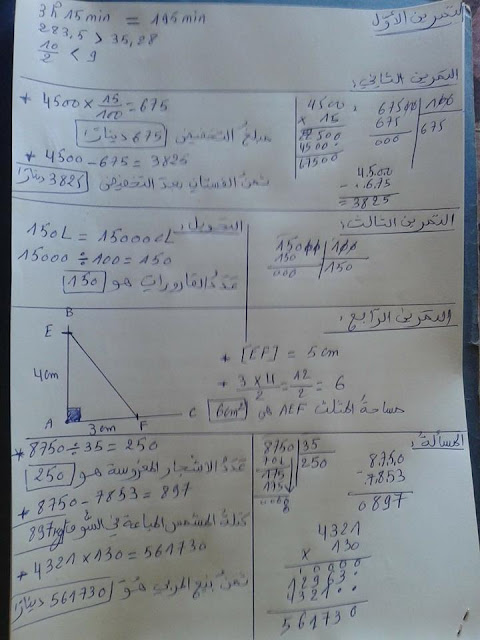 التمرين الأول
3h 15min = 195min
283,5 > 35,28
10/2 < 9
التمرين الثاني:
* 4500 × 15/100 = 675
مبلغ التخفيض 675 دينارا
* 4500 - 675 = 3825
ثمن الفستان بعد التخفيض 3825 دينارا
4500
× 15
22500
4500.
67500
67500 | 100
675 | 675
000
4500
- 0675
= 3825
التمرين الثالث:
التحويل:
150L = 15000cL
15000 ÷ 100 = 150
عدد القارورات هو 150
15000 | 100
150 | 150
000
التمرين الرابع:
B
E
4cm
A 3cm F C
* [EF] = 5cm
* 3×4/2 = 12/2 = 6
مساحة المثلث AEF هي 6cm²
المسألة:
* 8750 ÷ 35 = 250
عدد الأشجار المغروسة هو 250
* 8750 - 7853 = 897
كتلة المشمش المباعة في السوق 897kg
* 4321 × 130 = 561730
ثمن بيع المربى هو 561730 دينارا
8750 | 35
250
175
175
8750
- 7853
0897
4321
× 130
0000
12963.
4321..
561730